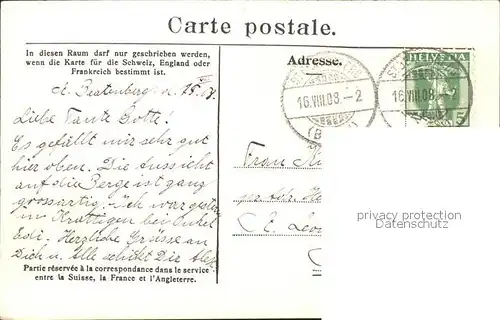 Carte postale.
In diesen Raum darf nur geschrieben werden,
wenn die Karte für die Schweiz, England oder
Frankreich bestimmt ist.
Adresse.
HELVETIA
5
16.VIII.08.-2
16.VIII.08.
St. Beatenberg
Liebe Tante Lotte!
Es gefällt mir sehr gut
hier oben. Die Aussicht
auf die Berge ist ganz
grossartig. Ich war gestern
in Krattigen bei Onkel
Edi. Herzliche Grüsse an
Dich u. Alle schickt Dir
Frau
Leon
privacy protection
Datenschutz
Partie réservée à la correspondance dans le service
entre la Suisse, la France et l'Angleterre.